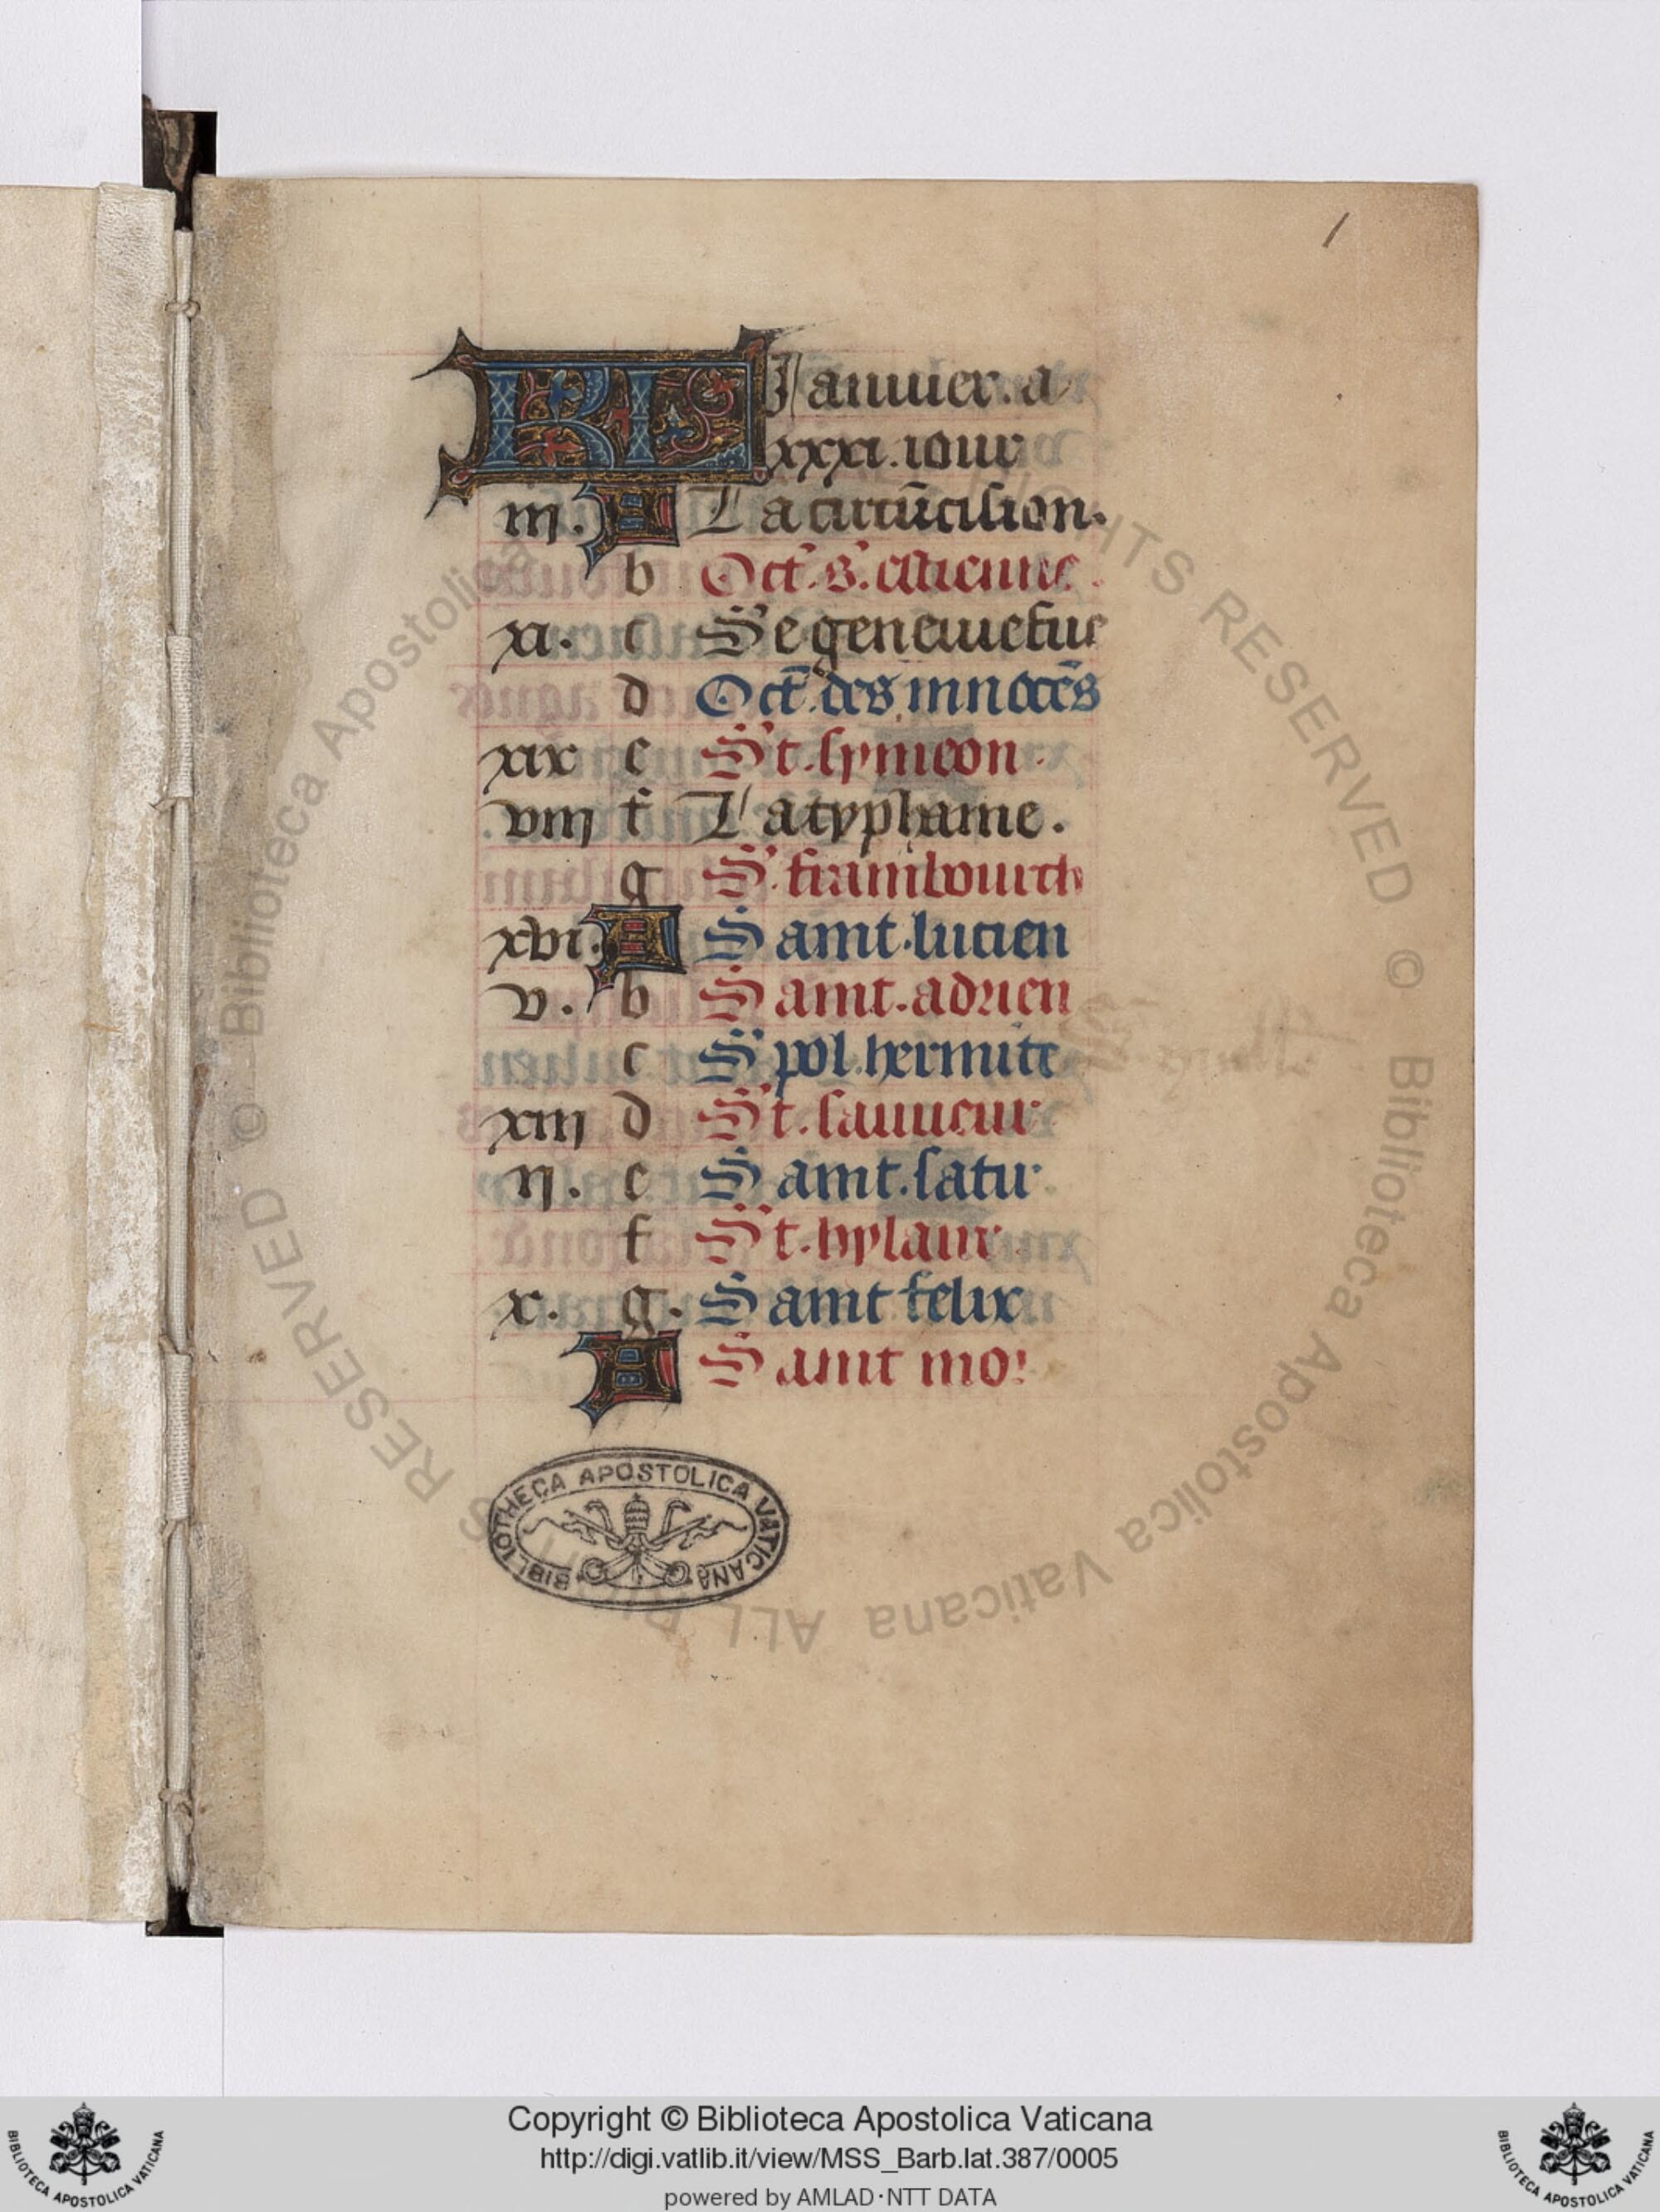 1
KL Januier. a
xxxi. iour
iii. A La circūcision.
b Oct. s. estienne.
xi. c Se geneuiefue
d Oct. des innocēs
xix e St. symeon.
viii f La typhanie.
g S. frambourch
xvi. A Saint. lucien
v. b Saint. adrien
c S pol. hermite
xiii d St. sauueur
ii. e Saint. satur
f St. hylaire.
x. g. Saint felix
A Saint mor
BIBLIOTHECA APOSTOLICA VATICANA
© Biblioteca Apostolica Vaticana ALL RIGHTS RESERVED
Copyright © Biblioteca Apostolica Vaticana
http://digi.vatlib.it/view/MSS_Barb.lat.387/0005
powered by AMLAD·NTT DATA
BIBLIOTECA APOSTOLICA VATICANA
BIBLIOTECA APOSTOLICA VATICANA